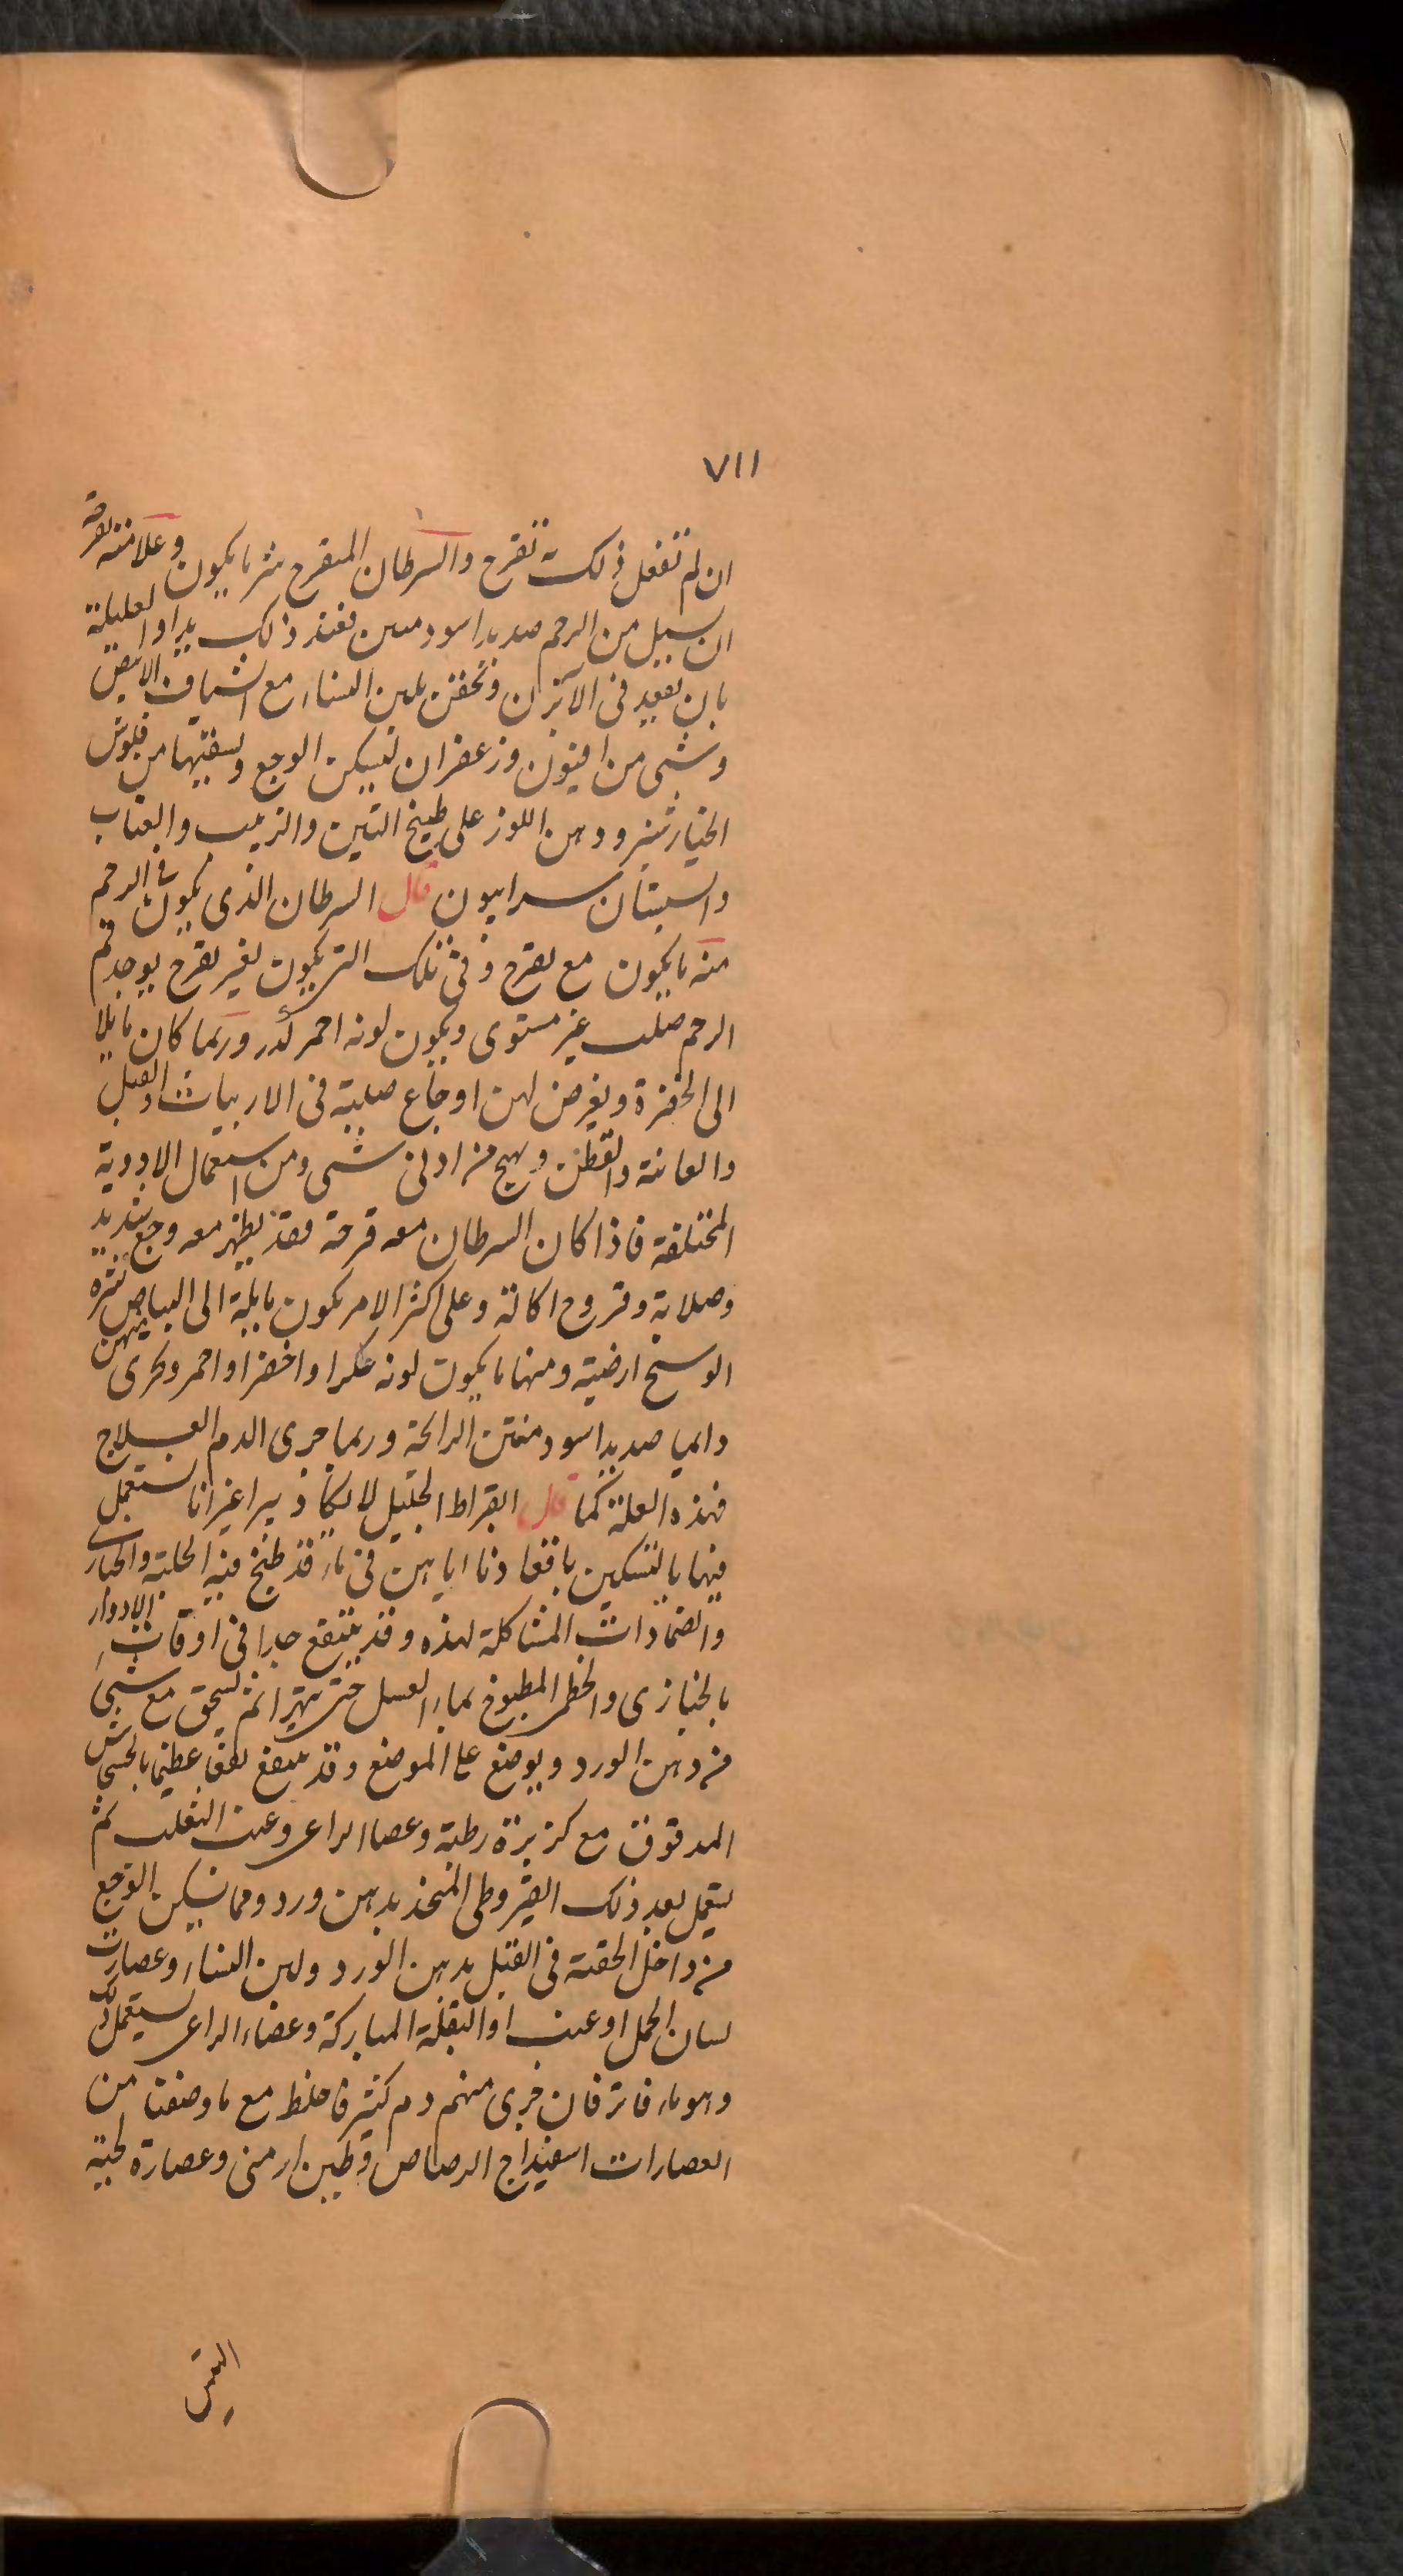 ٧١١
ان لم تفعل ذلك به تقرح والسرطان المتقرح شر ما يكون وعلامته تقرحه
ان يسيل من الرحم صديد اسود منتن فعند ذلك يداوا العليلة
بان تقعد فى الآبزن وتحقن بلبن النساء مع الشياف الابيض
وشى من افيون وزعفران ليسكن الوجع وتسقيها من فلوس
الخيارشنبر ودهن اللوز على طبيخ التين والزبيب والعناب
والسبستان سرابيون قال السرطان الذى يكون فى الرحم
منه ما يكون مع تقرح وفى تلك التى يكون بغير تقرح يوجد فم
الرحم صلب غير مستوى ويكون لونه احمر كدر وربما كان مايلا
الى الخضرة ويعرض لهن اوجاع صلبة فى الاربيات والقبل
والعانة والقطن ويهيج من ادنى شى ومن استعمال الادوية
المختلفة فاذا كان السرطان معه قرحة فقد يظهر معه وجع شديد
وصلابة وقروح اكالة وعلى اكثر الامر يكون مايلة الى البياض كثيرة
الوسخ ارضية ومنها ما يكون لونه عكرا واخضر او احمر وجرى منهن
دايما صديد اسود منتن الرائحة وربما جرى الدم العلاج
فهذه العلة كما قال ابقراط الجليل لا تكاد تبرا غير انا نستعمل
فيها بالتسكين باقعادنا اياهن فى ماء قد طبخ فيه الحلبة والخبازى
والضمادات المشاكلة لهذه وقد ينتفع جدا فى اوقات الادوار
بالخبازى والخطمى المطبوخ بماء العسل حتى يتهرا ثم يسحق مع شى
من دهن الورد ويوضع على الموضع وقد ينتفع نفعا عظيما بالخشخاش
المدقوق مع كزبرة رطبة وعصا الراعى وعنب الثعلب ثم
يستعمل بعد ذلك القيروطى المتخذ بدهن ورد ومما يسكن الوجع
من داخل الحقنة فى القبل بدهن الورد ولبن النساء وعصارت
لسان الحمل او عنب او البقلة المباركة وعصاء الراعى يستعمل ذلك
وهو ماء فاتر فان جرى منهم دم كثير فاخلط مع ما وصفنا من
العصارات اسفيداج الرصاص وطين ارمنى وعصارة لحية
التيس